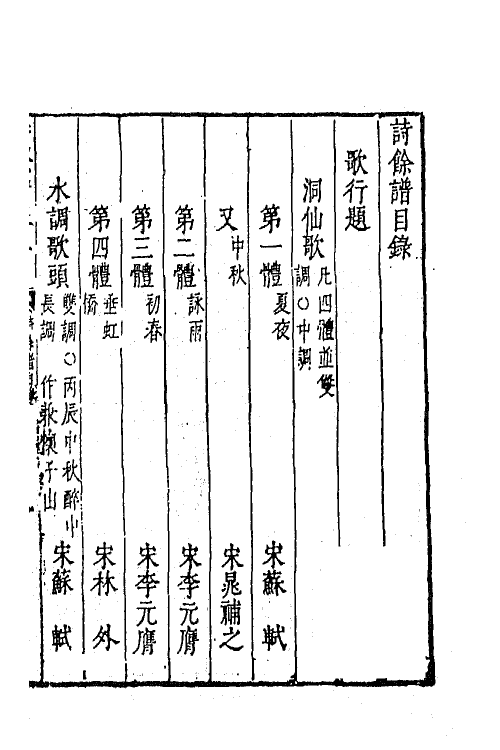 詩餘譜目錄
歌行題
洞仙歌 凡四體並雙調○中調
第一體 夏夜 宋蘇軾
又 中秋 宋晁補之
第二體 詠雨 宋李元膺
第三體 初春 宋李元膺
第四體 垂虹橋 宋林外
水調歌頭 雙調○長調 丙辰中秋醉中作兼懷子由 宋蘇軾